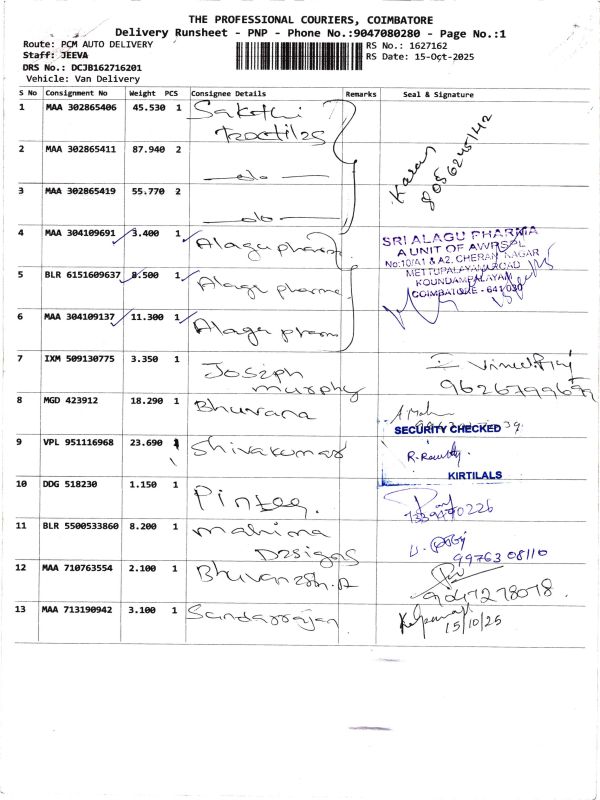 THE PROFESSIONAL COURIERS, COIMBATORE
Delivery Runsheet - PNP - Phone No.:9047080280 - Page No.:1
Route: PCM AUTO DELIVERY
Staff: JEEVA
DRS No.: DCJB162716201
Vehicle: Van Delivery
RS No.: 1627162
RS Date: 15-Oct-2025
S No Consignment No Weight PCS Consignee Details Remarks Seal & Signature
1 MAA 302865406 45.530 1 Sakthi
Textiles
2 MAA 302865411 87.940 2 do
Karan
8056245142
3 MAA 302865419 55.770 2 do
4 MAA 304109691 3.400 1 Alagu pharma
SRI ALAGU PHARMA
A UNIT OF AWPSPL
No:10/A1 & A2, CHERAN NAGAR
METTUPALAYAM ROAD
KOUNDAMPALAYAM
COIMBATORE - 641 030
5 BLR 6151609637 8.500 1 Alagu pharma
6 MAA 304109137 11.300 1 Alagu pharm
7 IXM 509130775 3.350 1 Joseph
murphy
8 MGD 423912 18.290 1 Bhuvana
SECURITY CHECKED
9 VPL 951116968 23.690 1 Shivakumar
KIRTILALS
10 DDG 518230 1.150 1
11 BLR 5500533860 8.200 1 mahima
Designs
99763 08110
12 MAA 710763554 2.100 1 Bhuvanesh.A
9047278078
13 MAA 713190942 3.100 1 Sandarrajan
15/10/25